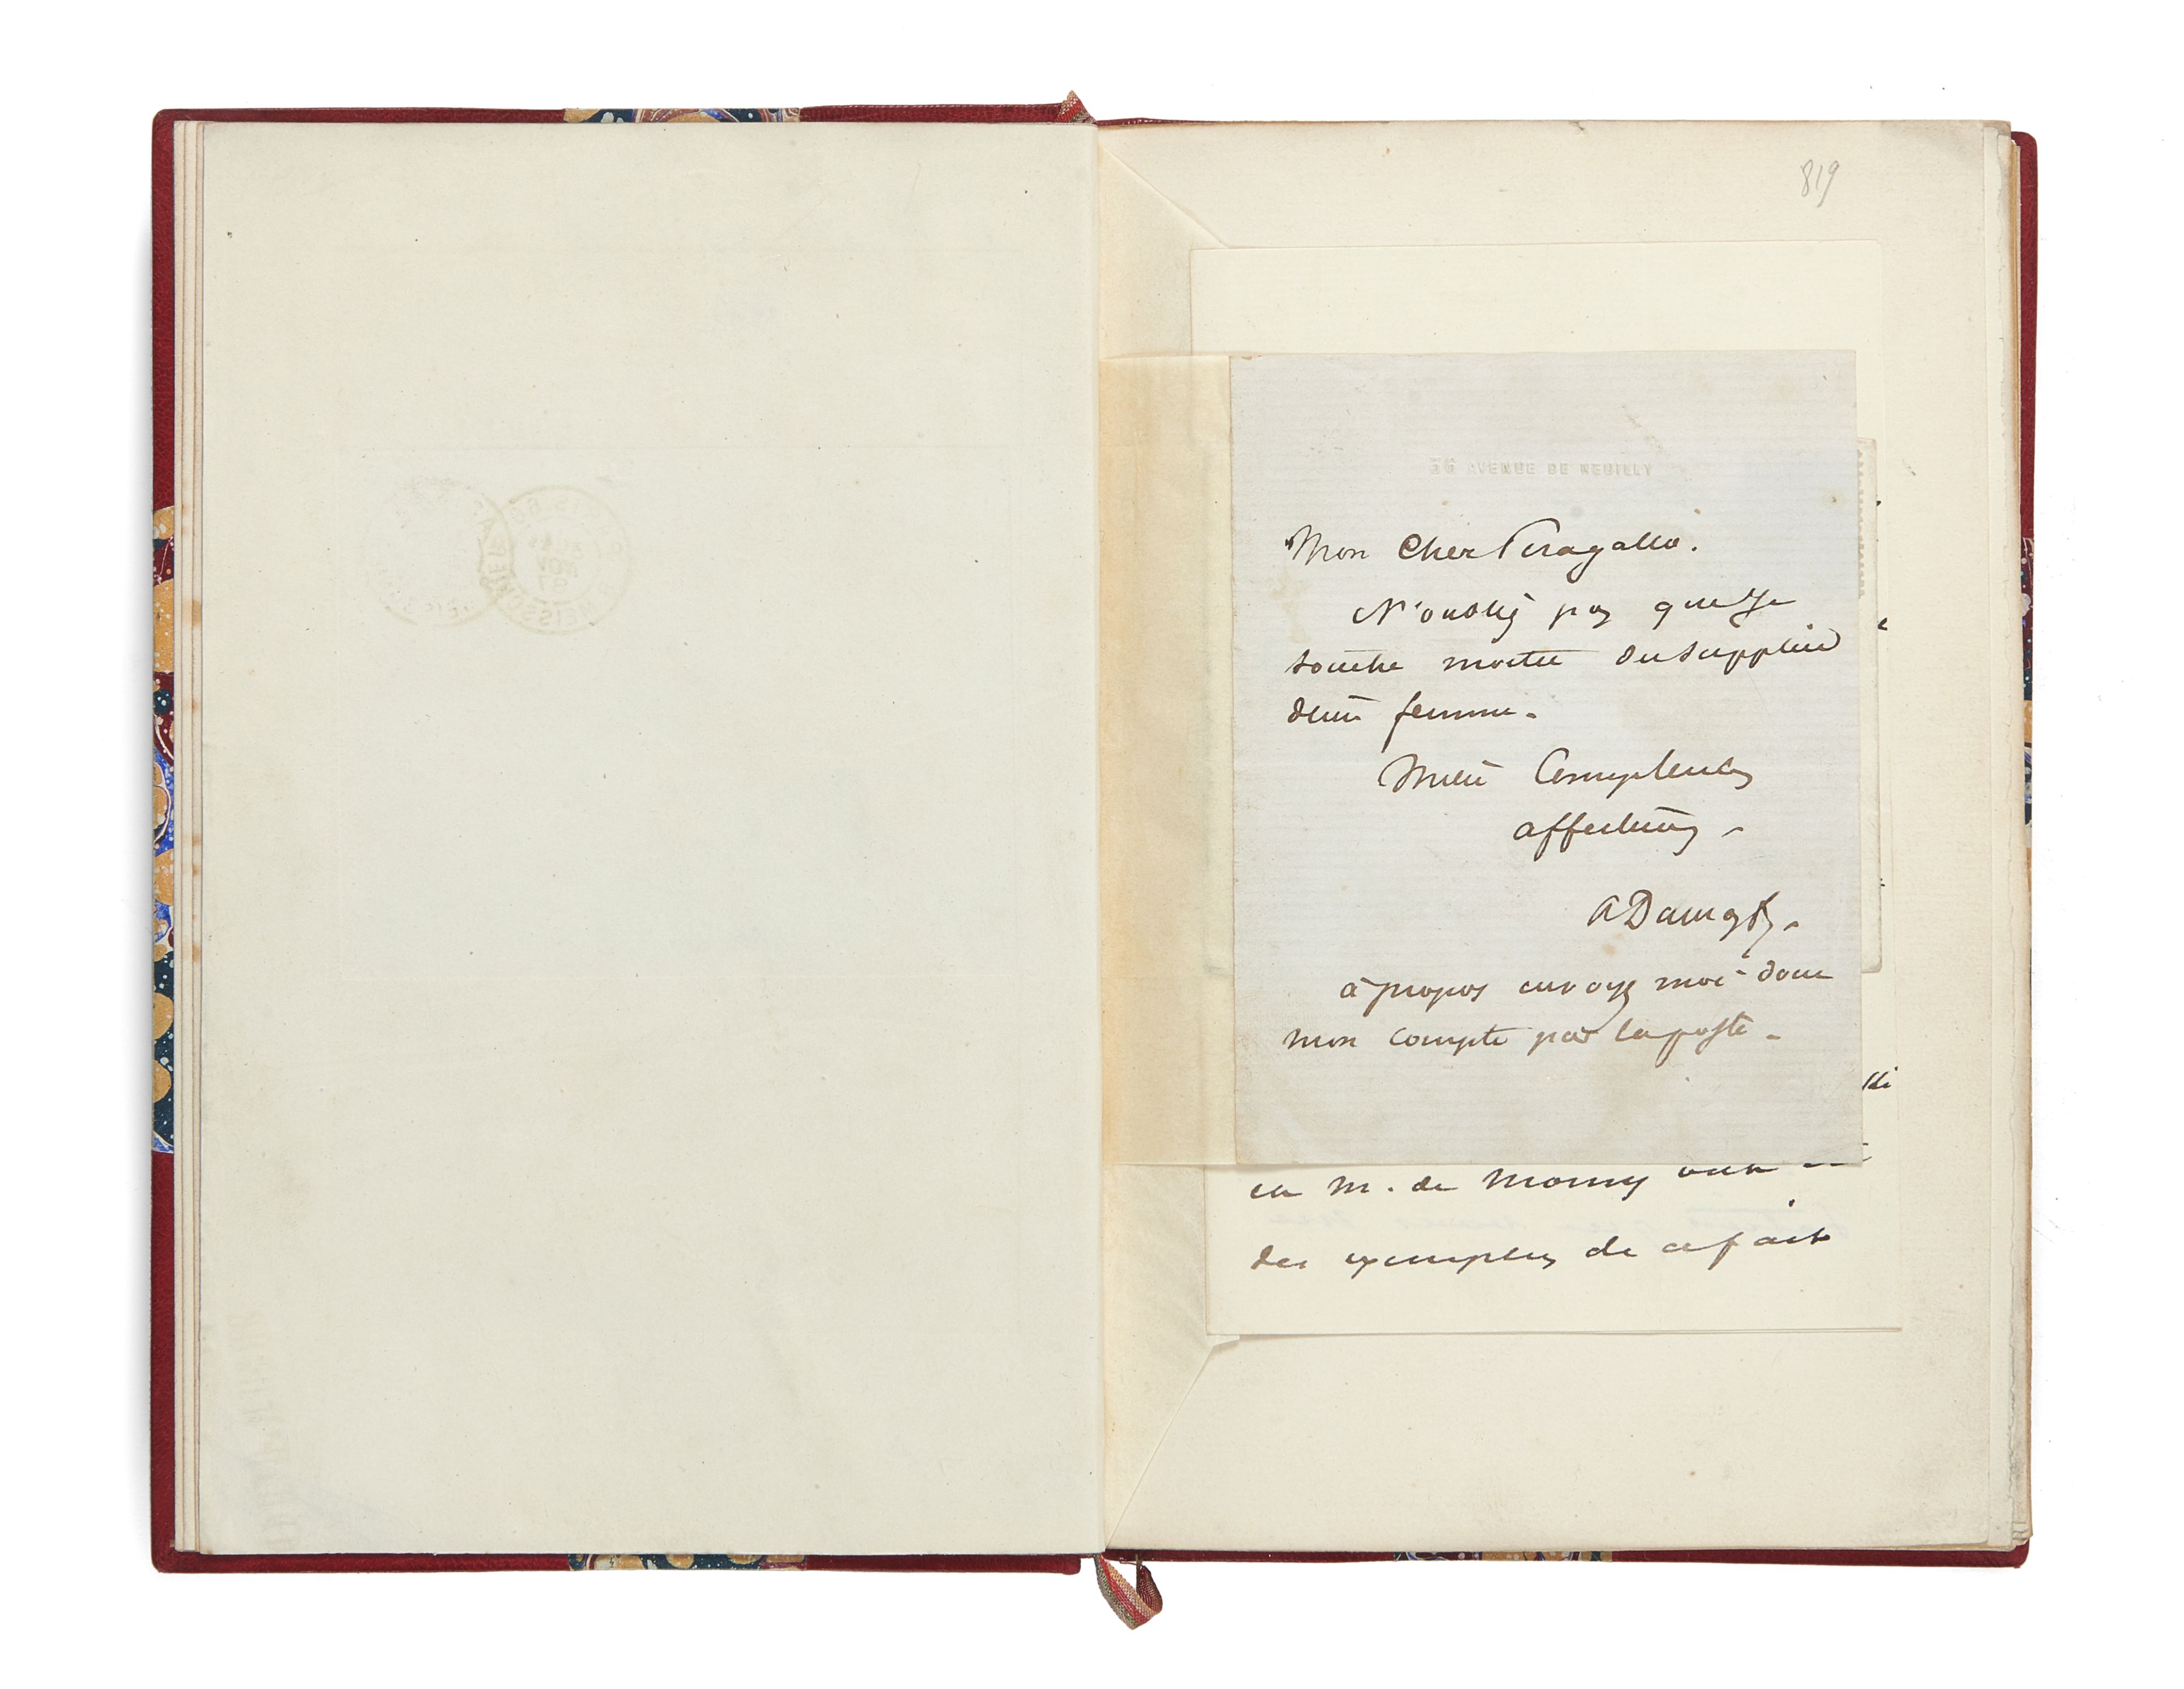 819
36 AVENUE DE NEUILLY
Mon Cher Peragallo.
N'oubliez pas que Je
touche moitié du supplice
d'une femme.
Mille Compliments
affectueux
ADumasf.
à propos envoyez moi donc
mon compte par la poste.
et M. de Morny
des exemples de ce fait